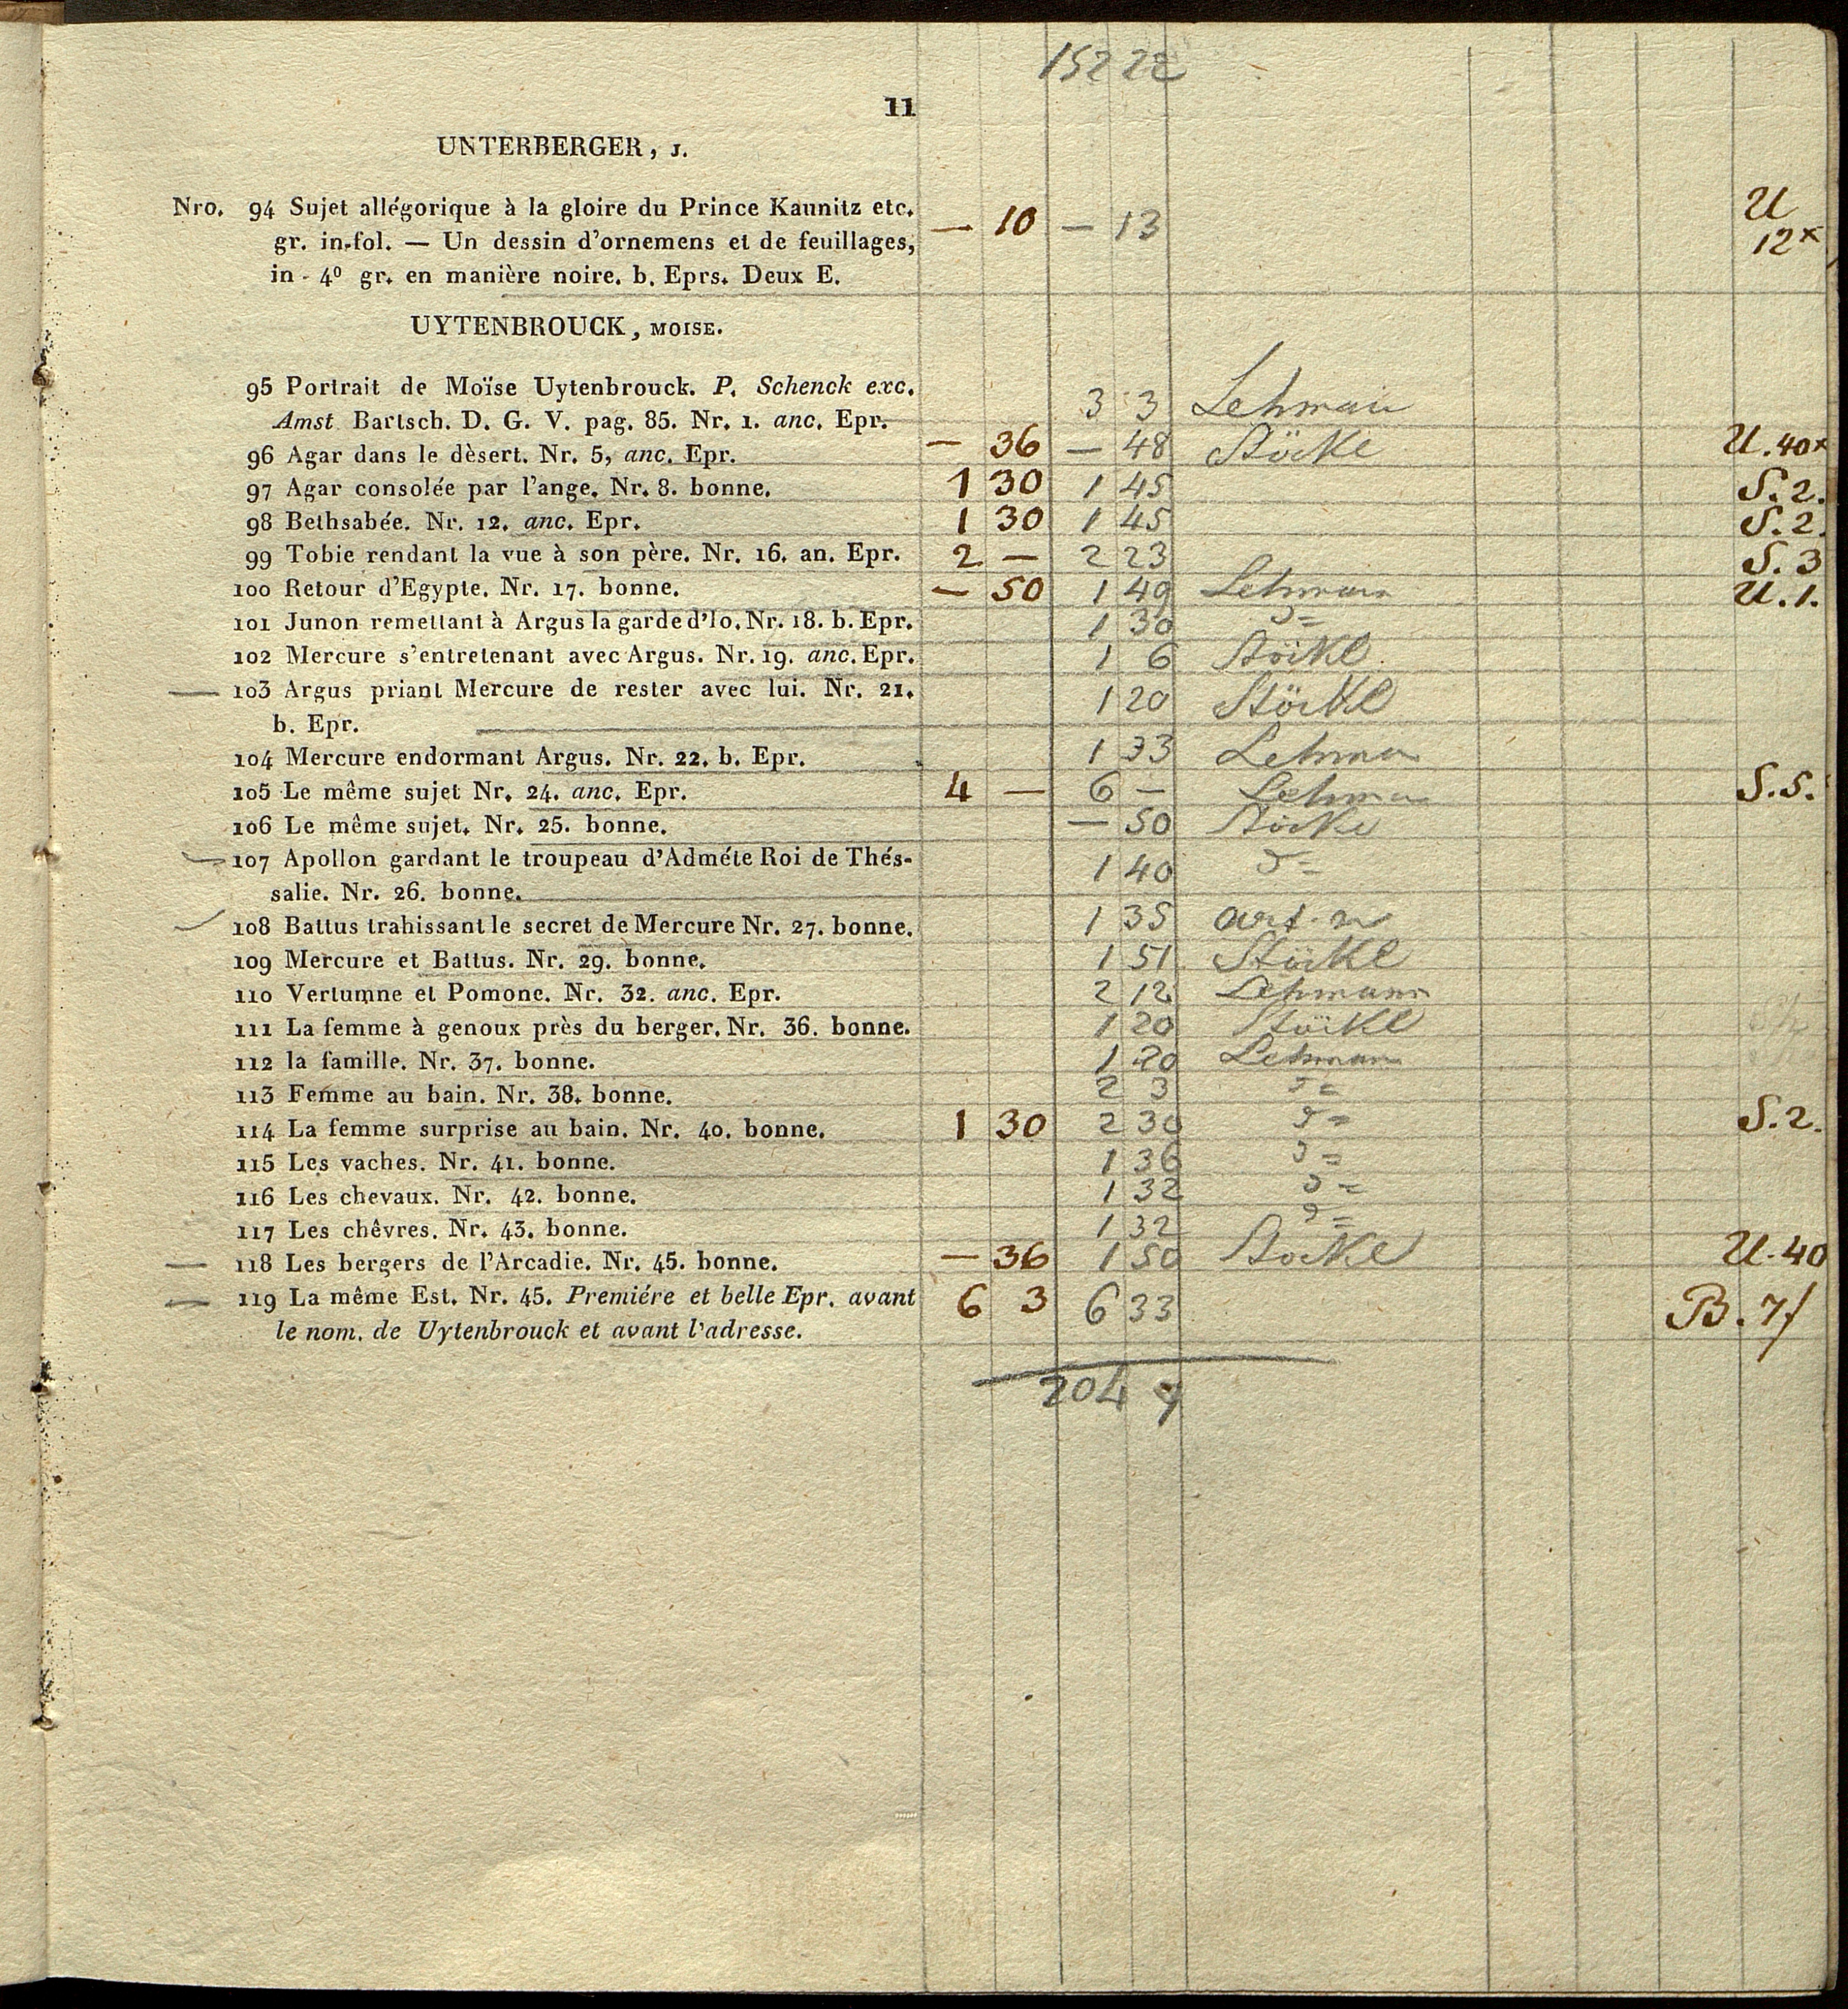 152 22
11
UNTERBERGER, J.
Nro. 94 Sujet allégorique à la gloire du Prince Kaunitz etc. — 10 — 13 U
gr. in-fol. — Un dessin d'ornemens et de feuillages, 12x
in - 4º gr. en manière noire. b. Eprs. Deux E.
UYTENBROUCK, MOISE.
95 Portrait de Moïse Uytenbrouck. P. Schenck exc.
Amst. Bartsch. D. G. V. pag. 85. Nr. 1. anc. Epr. 3 3 Lehman
96 Agar dans le dèsert. Nr. 5, anc. Epr. — 36 — 48 Stöckl U. 40x
97 Agar consolée par l'ange. Nr. 8. bonne. 1 30 1 45 S. 2.
98 Bethsabée. Nr. 12. anc. Epr. 1 30 1 45 S. 2.
99 Tobie rendant la vue à son père. Nr. 16. an. Epr. 2 — 2 23 S. 3
100 Retour d'Egypte. Nr. 17. bonne. — 50 1 49 Lehman U. 1.
101 Junon remettant à Argus la garde d'Io. Nr. 18. b. Epr. 1 30
102 Mercure s'entretenant avec Argus. Nr. 19. anc. Epr. 1 6 Stöckl
103 Argus priant Mercure de rester avec lui. Nr. 21. 1 20 Stöckl
b. Epr.
104 Mercure endormant Argus. Nr. 22. b. Epr. 1 33 Lehman
105 Le même sujet Nr. 24. anc. Epr. 4 — 6 — Lehman S. 5.
106 Le même sujet. Nr. 25. bonne. — 50 Stöckl
107 Apollon gardant le troupeau d'Adméte Roi de Thés-
salie. Nr. 26. bonne. 1 40
108 Battus trahissant le secret de Mercure Nr. 27. bonne. 1 35
109 Mercure et Battus. Nr. 29. bonne. 1 51 Stöckl
110 Vertumne et Pomone. Nr. 32. anc. Epr. 2 12 Lehmann
111 La femme à genoux près du berger. Nr. 36. bonne. 1 20 Stöckl
112 la famille. Nr. 37. bonne. 1 20 Lehman
113 Femme au bain. Nr. 38. bonne. 2 3
114 La femme surprise au bain. Nr. 40. bonne. 1 30 2 30 S. 2.
115 Les vaches. Nr. 41. bonne. 1 36
116 Les chevaux. Nr. 42. bonne. 1 32
117 Les chêvres. Nr. 43. bonne. 1 32
118 Les bergers de l'Arcadie. Nr. 45. bonne. — 36 1 50 Stöckl U. 40
119 La même Est. Nr. 45. Premiére et belle Epr. avant 6 3 6 33 B. 7f
le nom. de Uytenbrouck et avant l'adresse.
204 9